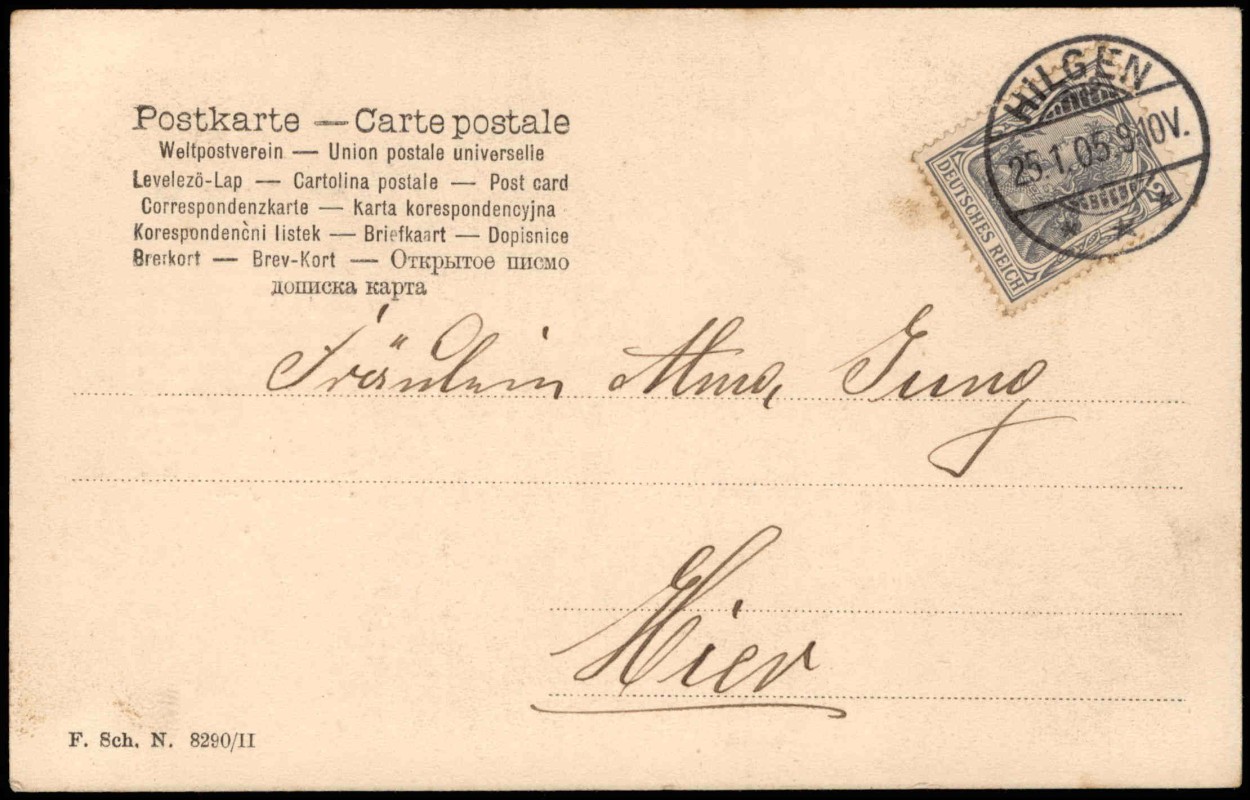 Postkarte — Carte postale
Weltpostverein — Union postale universelle
Levelezö-Lap — Cartolina postale — Post card
Correspondenzkarte — Karta korespondencyjna
Korespondenčni listek — Briefkaart — Dopisnice
Brerkort — Brev-Kort — Открытое писмо
дописка карта
HILGEN
25.1.05.9-10V.
DEUTSCHES REICH
Fräulein Jung
Hier
F. Sch. N. 8290/II